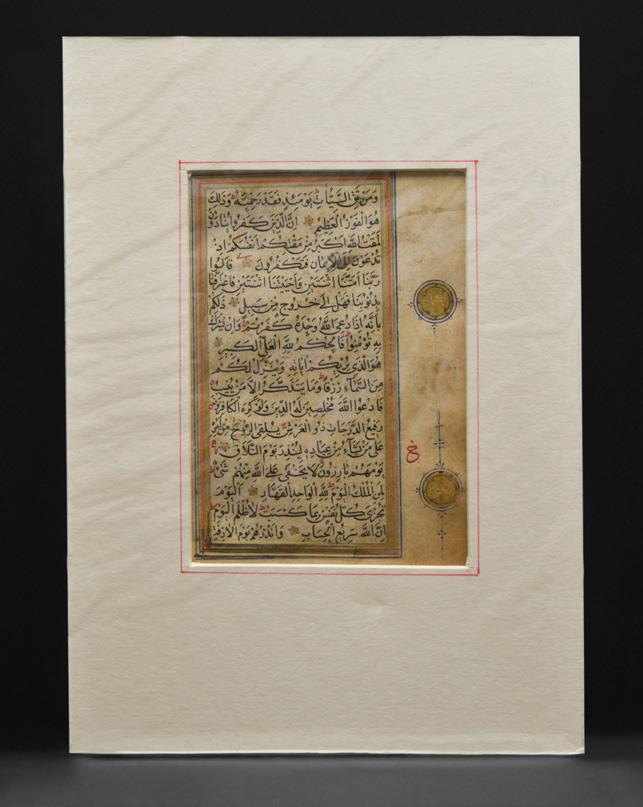 وَمَن تَقِ السَّيِّئَاتِ يَوْمَئِذٍ فَقَدْ رَحِمْتَهُ وَذَلِكَ
هُوَ الْفَوْزُ الْعَظِيمُ اِنَّ الَّذِينَ كَفَرُوا يُنَادَوْنَ
لَمَقْتُ اللَّهِ اَكْبَرُ مِنْ مَقْتِكُمْ اَنْفُسَكُمْ اِذْ
تُدْعَوْنَ اِلَى الْاِيمَانِ فَتَكْفُرُونَ قَالُوا
رَبَّنَا اَمَتَّنَا اثْنَتَيْنِ وَاَحْيَيْتَنَا اثْنَتَيْنِ فَاعْتَرَفْنَا
بِذُنُوبِنَا فَهَلْ اِلَى خُرُوجٍ مِنْ سَبِيلٍ ذَلِكُمْ
بِاَنَّهُ اِذَا دُعِيَ اللَّهُ وَحْدَهُ كَفَرْتُمْ وَاِنْ يُشْرَكْ
بِهِ تُؤْمِنُوا فَالْحُكْمُ لِلَّهِ الْعَلِيِّ الْكَبِيرِ
هُوَ الَّذِي يُرِيكُمْ اٰيَاتِهِ وَيُنَزِّلُ لَكُمْ
مِنَ السَّمَاءِ رِزْقًا وَمَا يَتَذَكَّرُ اِلَّا مَنْ يُنِيبُ
فَادْعُوا اللَّهَ مُخْلِصِينَ لَهُ الدِّينَ وَلَوْ كَرِهَ الْكَافِرُونَ
رَفِيعُ الدَّرَجَاتِ ذُو الْعَرْشِ يُلْقِي الرُّوحَ مِنْ اَمْرِهِ
عَلَى مَنْ يَشَاءُ مِنْ عِبَادِهِ لِيُنْذِرَ يَوْمَ التَّلَاقِ
يَوْمَ هُمْ بَارِزُونَ لَا يَخْفَى عَلَى اللَّهِ مِنْهُمْ شَيْءٌ
لِمَنِ الْمُلْكُ الْيَوْمَ لِلَّهِ الْوَاحِدِ الْقَهَّارِ اَلْيَوْمَ
تُجْزَى كُلُّ نَفْسٍ بِمَا كَسَبَتْ لَا ظُلْمَ الْيَوْمَ
اِنَّ اللَّهَ سَرِيعُ الْحِسَابِ وَاَنْذِرْهُمْ يَوْمَ الْاٰزِفَةِ